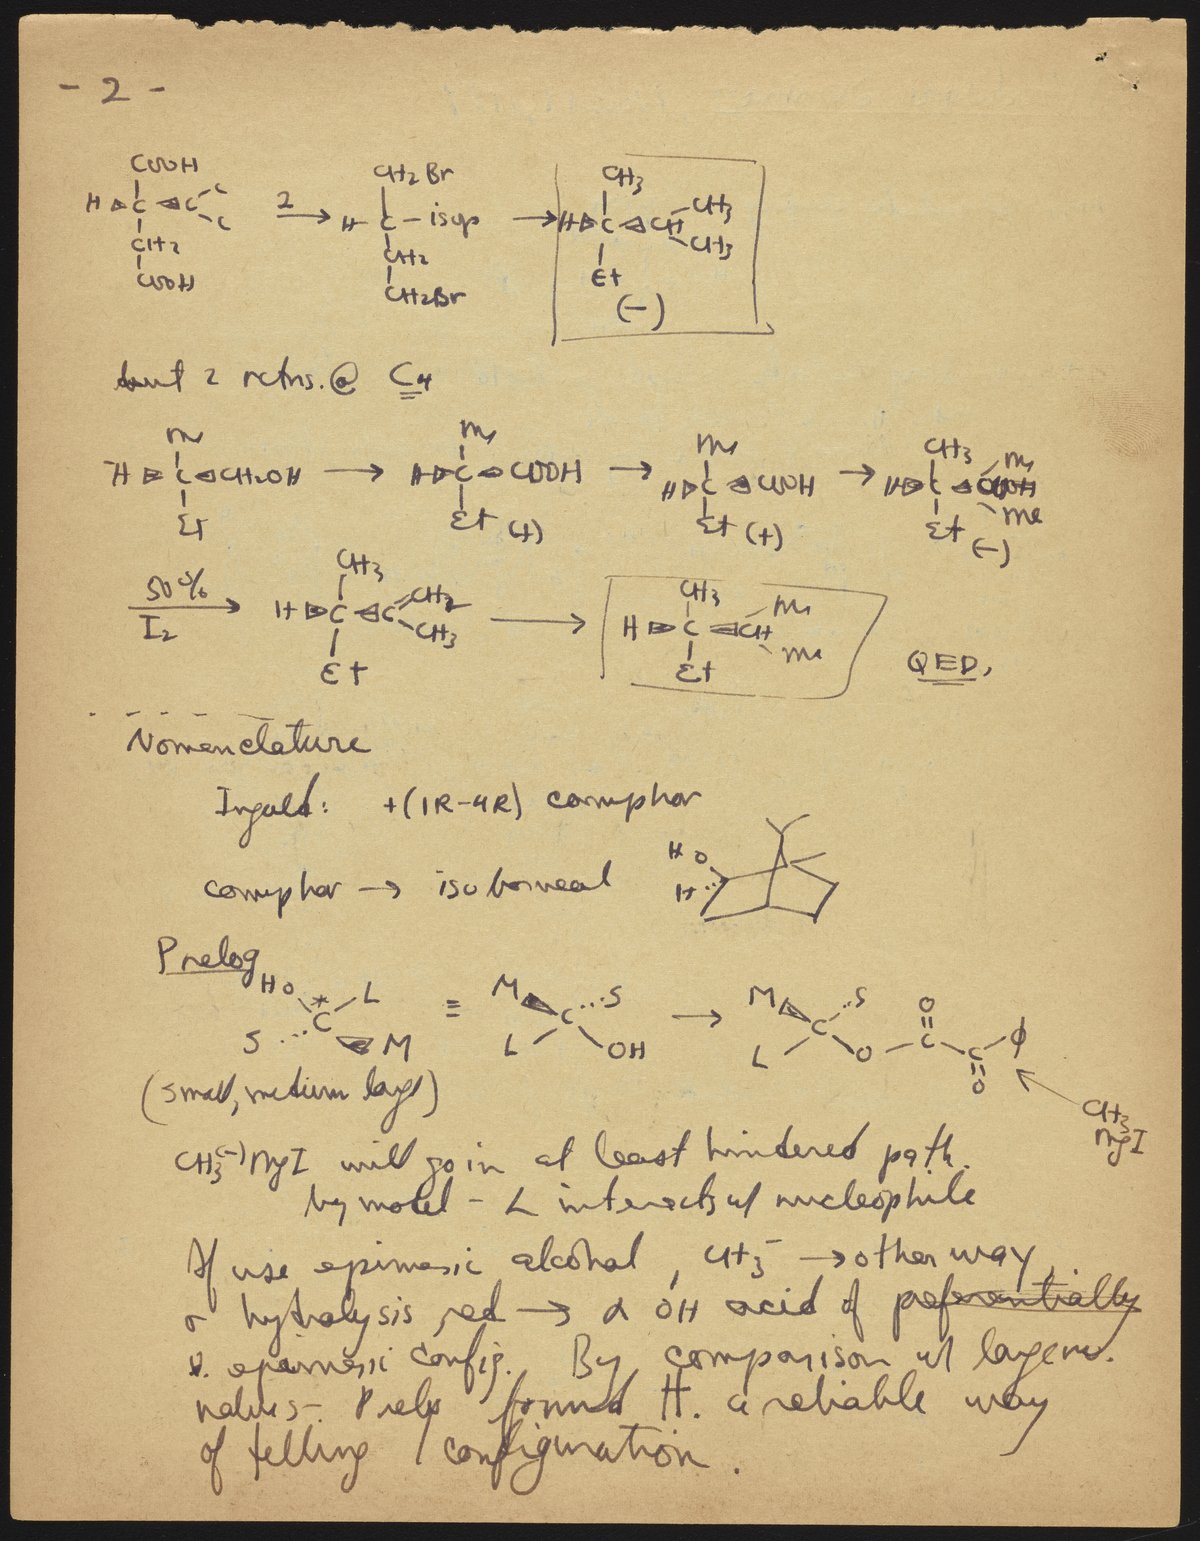 - 2 -
COOH CH2Br CH3
H C C C C 2 H C - isop H C CH CH3 CH3
CH2 CH2 Et
COOH CH2Br (-)
2 rctns. @ C4
Me Me Me CH3 Me
H C CH2OH H C COOH H C COOH H C COOH
Et Et (+) Et (+) Et (-) Me
50% CH3 CH3 Me
I2 H C C CH2 CH3 H C CH Me
Et Et QED.
Nomenclature
Ingold: +(1R-4R) camphor
camphor → isoborneol HO H
Prelog
HO * C L S M ≡ M C S L OH → M C S L O C O C O ϕ
(small, medium large) CH3 MgI
CH3(-)MgI will go in at least hindered path.
by model - L interacts w/ nucleophile
If use epimeric alcohol, CH3- → other way,
hydrolysis, red → α OH acid of preferentially
epimeric config. By comparison w/
values - found it. a reliable way
of telling configuration.